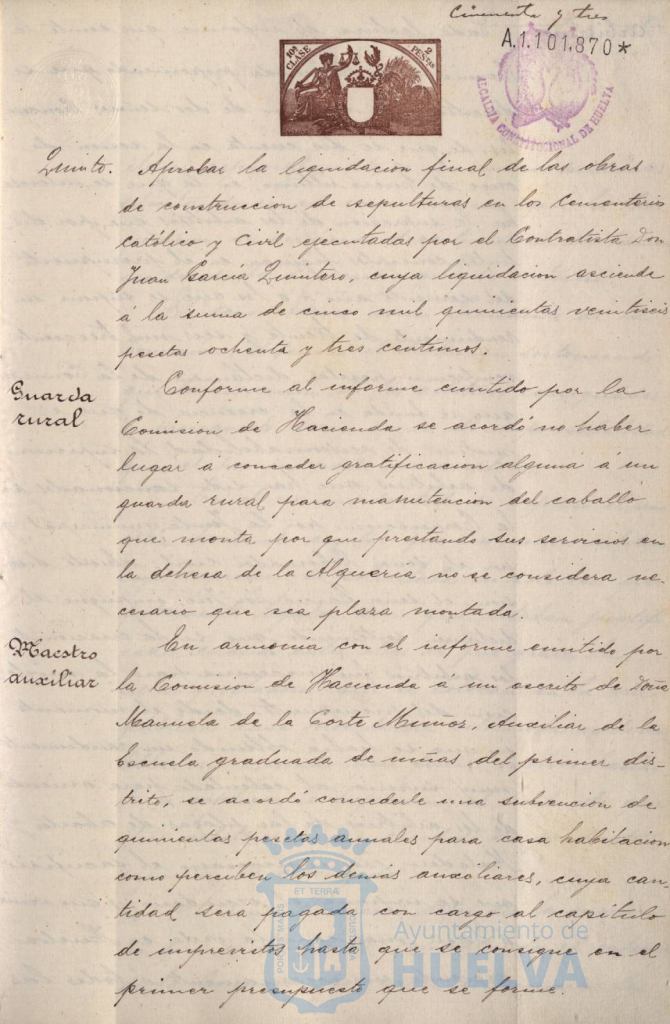 Cincuenta y tres
A.1.101.870*
10ª CLASE
2 PESETAS
ALCALDIA CONSTITUCIONAL DE HUELVA
Quinto. Aprobar la liquidacion final de las obras
de construccion de sepulturas en los Cementerios
Católico y Civil ejecutadas por el Contratista Don
Juan García Quintero, cuya liquidacion asciende
á la suma de cinco mil quinientas veintiseis
pesetas ochenta y tres céntimos.
Guarda
rural
Conforme al informe emitido por la
Comision de Hacienda se acordó no haber
lugar á conceder gratificacion alguna á un
guarda rural para manutencion del caballo
que monta por que prestando sus servicios en
la dehesa de la Alqueria no se considera ne-
cesario que sea plaza montada.
Maestro
auxiliar
En armonía con el informe emitido por
la Comision de Hacienda á un escrito de Doña
Manuela de la Corte Muñoz, Auxiliar de la
Escuela graduada de niñas del primer dis-
trito, se acordó concederle una subvencion de
quinientas pesetas anuales para casa habitacion
como perciben los demás auxiliares, cuya can-
tidad será pagada con cargo al capítulo
de imprevistos hasta que se consigne en el
primer presupuesto que se forme.
PORTUS MARIS ET TERRAE CUSTODIA
Ayuntamiento de
HUELVA